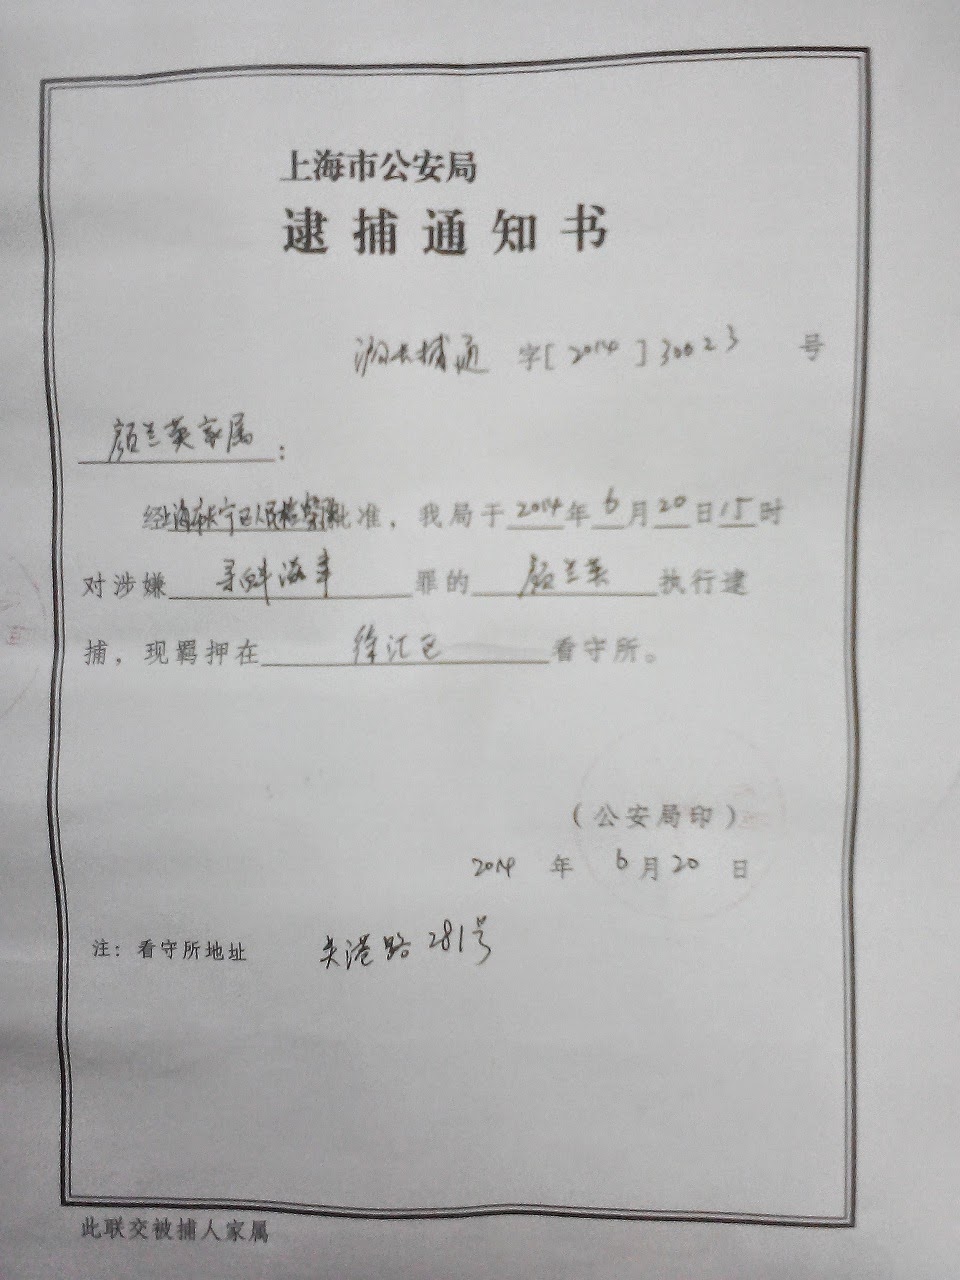 上海市公安局
逮捕通知书
沪公长捕通 字[2014]30023 号
颜兰英家属:
经上海市长宁区人民检察院批准，我局于2014年6月20日15时
对涉嫌寻衅滋事罪的颜兰英执行逮
捕，现羁押在徐汇区看守所。
(公安局印)
2014 年 6月20 日
注：看守所地址 关港路281号
此联交被捕人家属